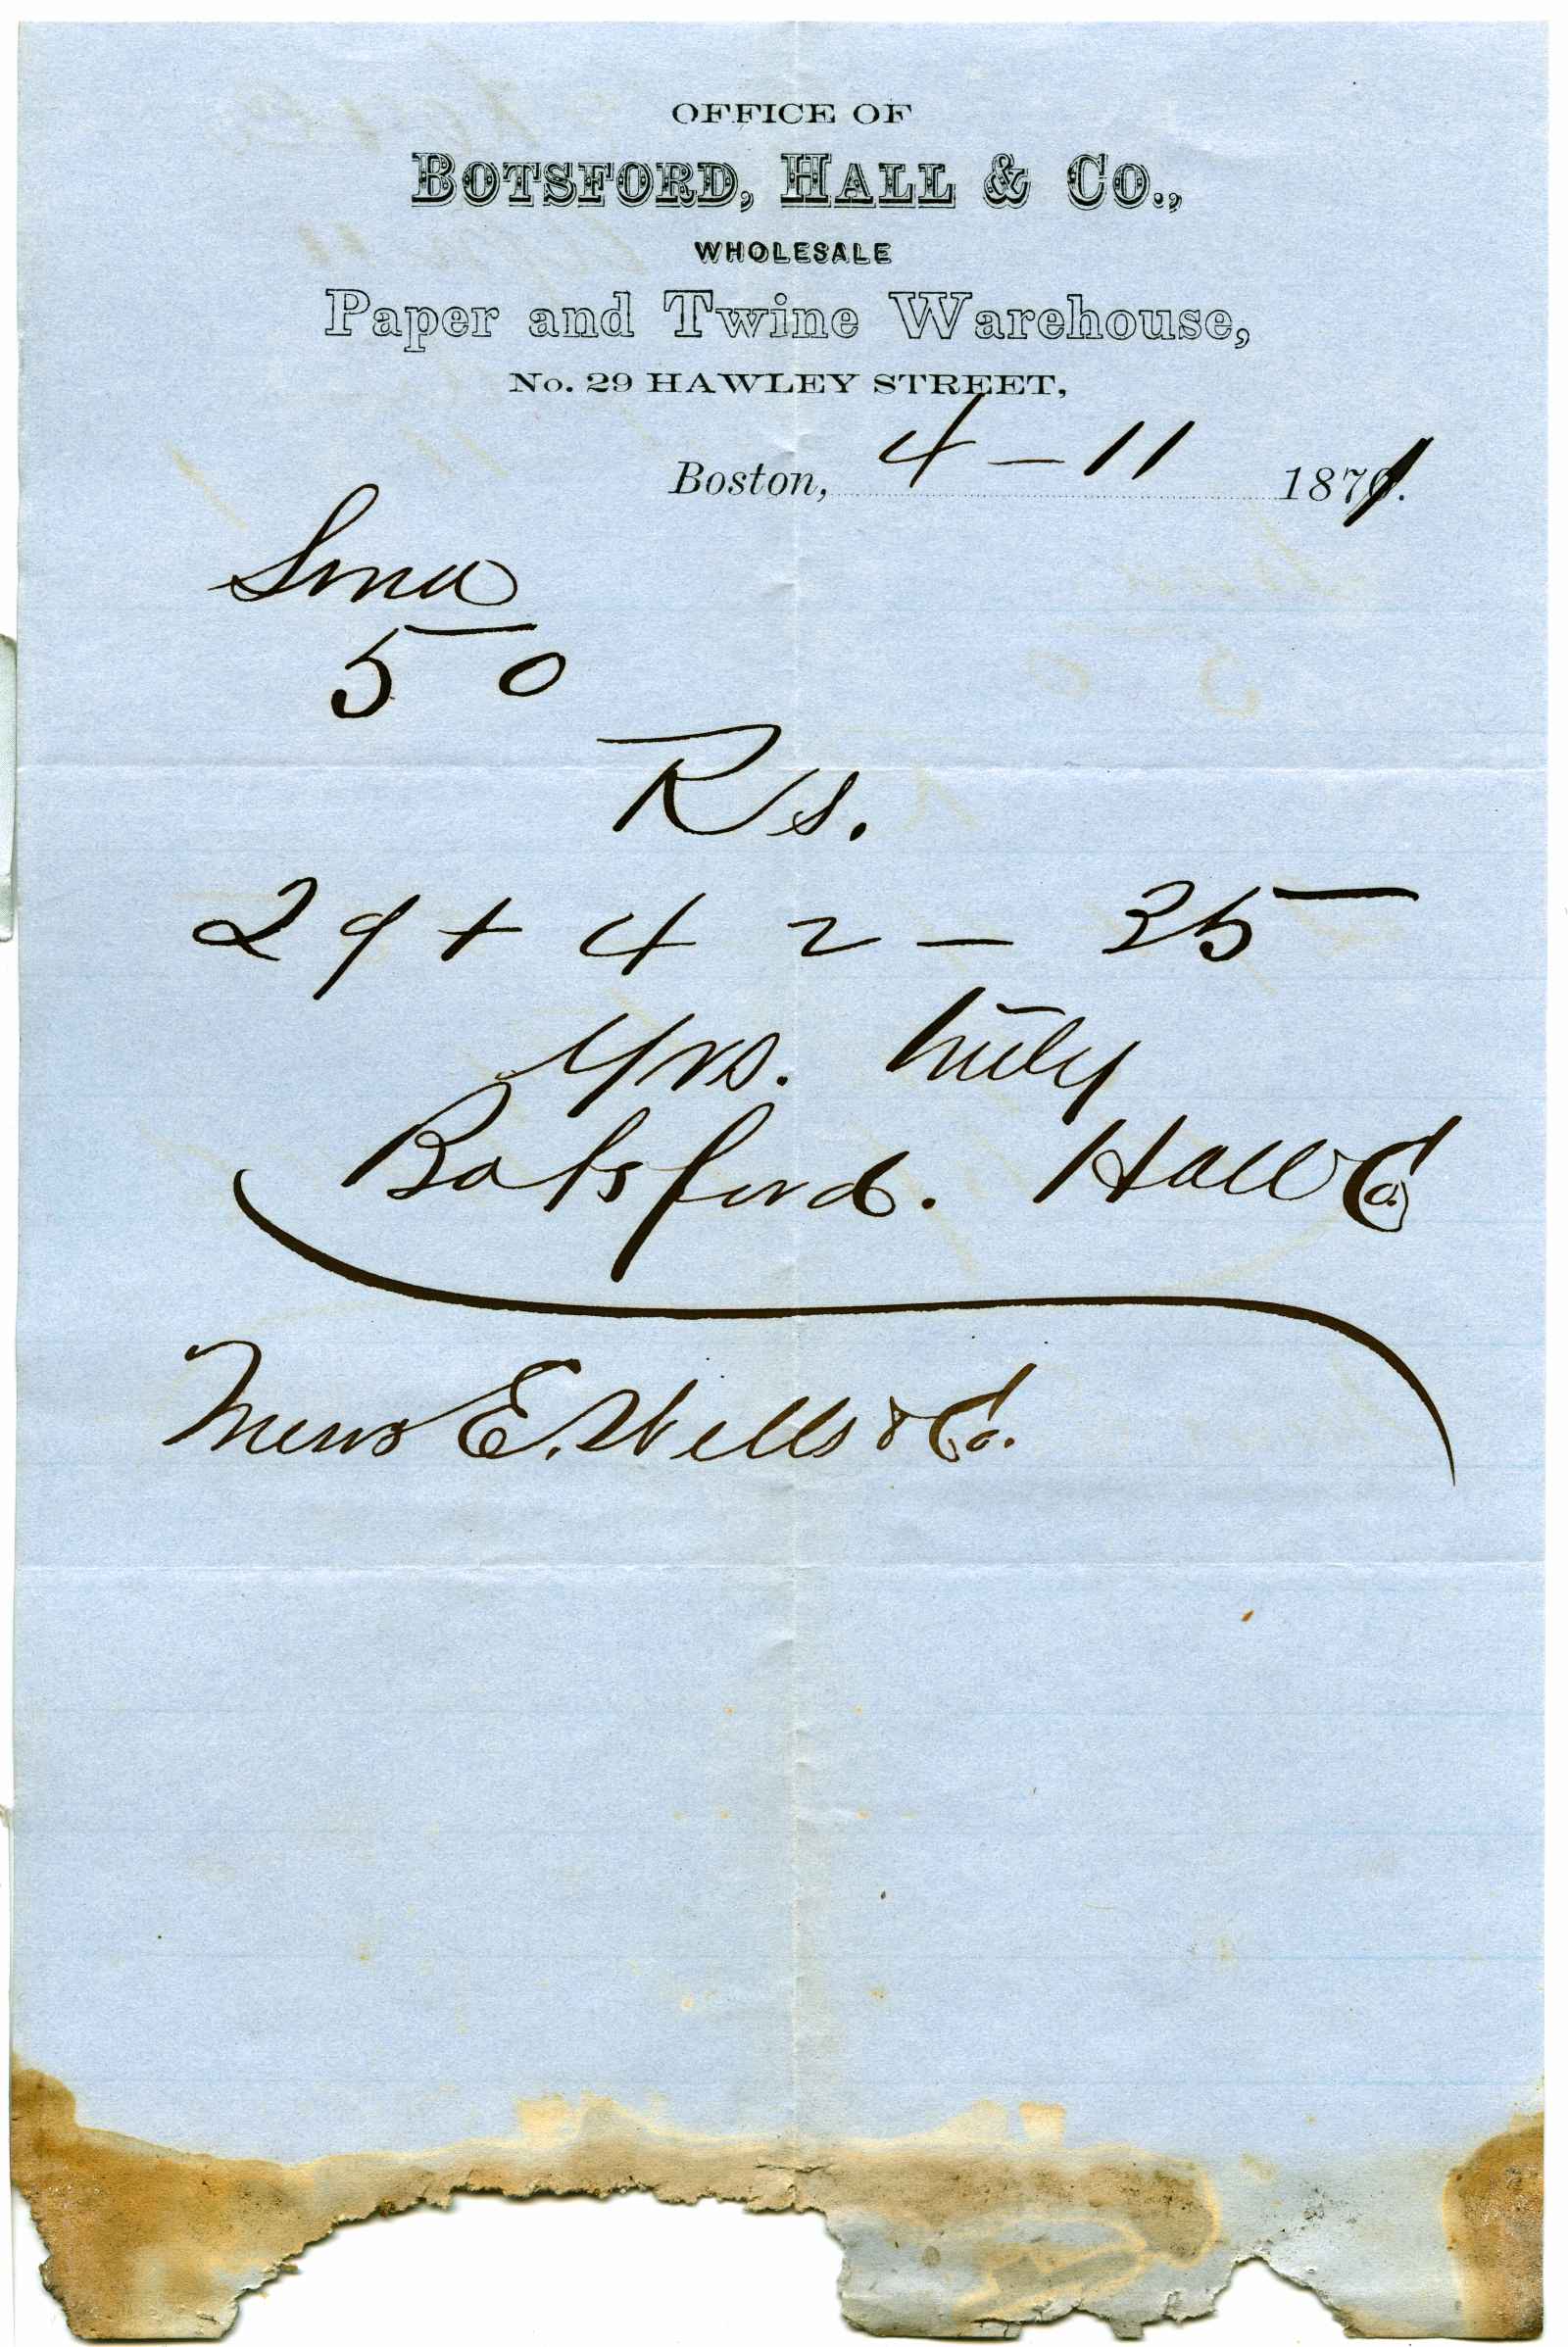 OFFICE OF
BOTSFORD, HALL & CO.,
WHOLESALE
Paper and Twine Warehouse,
No. 29 HAWLEY STREET,
Boston, 4 – 11 1871.
Send
50
Rs.
29 + 42 – 35
Yrs. truly
Botsford. Hall & Co.
Messrs E. Wells & Co.